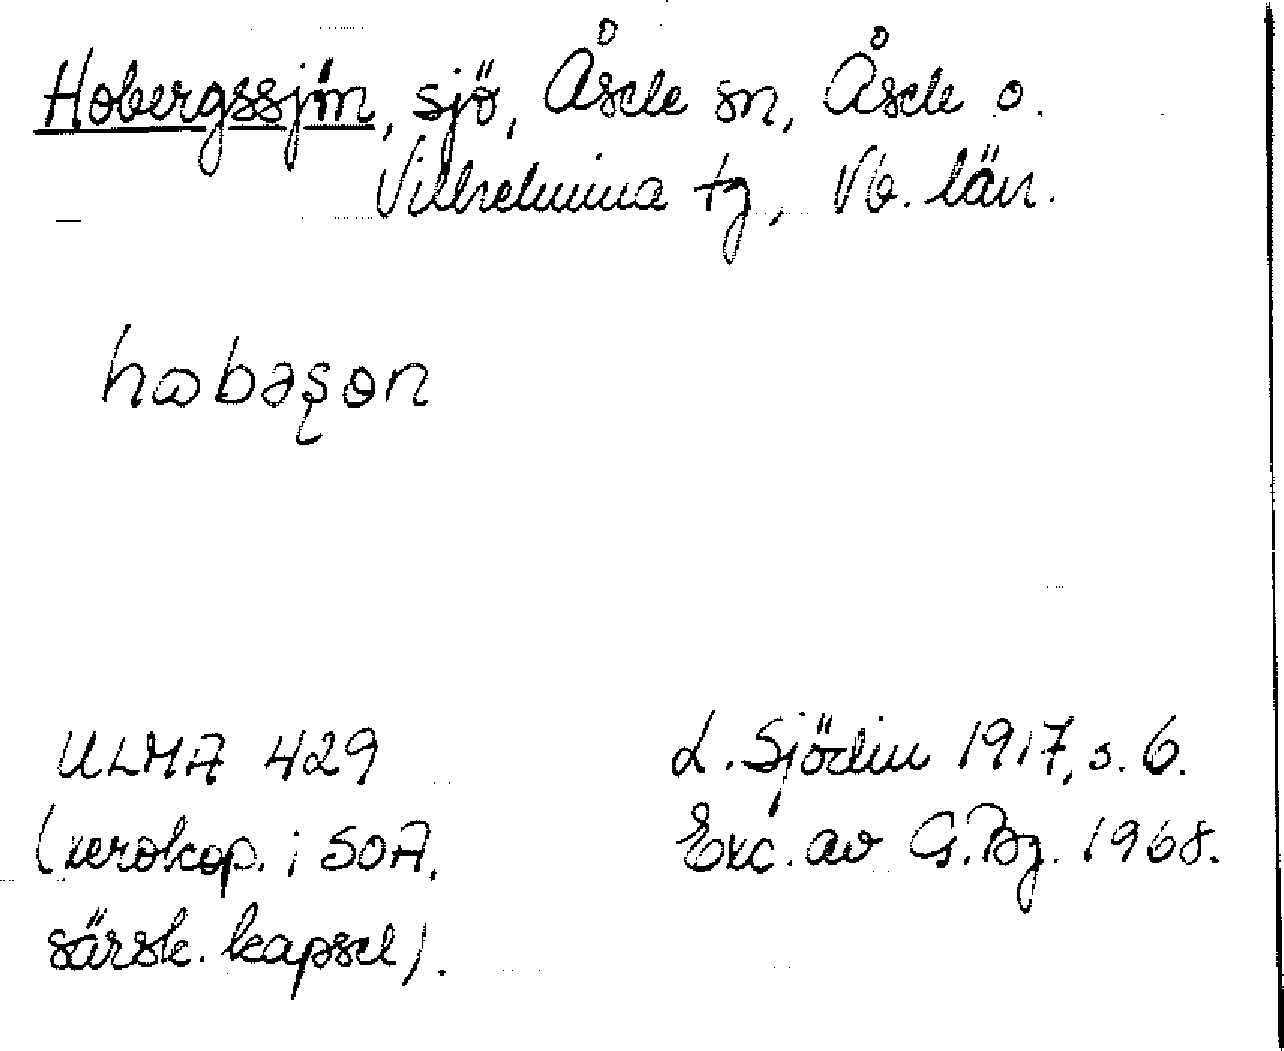 Hobergssjön, sjö, Åsele sn, Åsele o.
Vilhelmina tg, Vb. län.
hɷbəşɵn
ULMA 429
(xerokop. i SOA,
särsk. kapsel).
L. Sjödin 1917, s. 6.
Exc. av G. Bg. 1968.